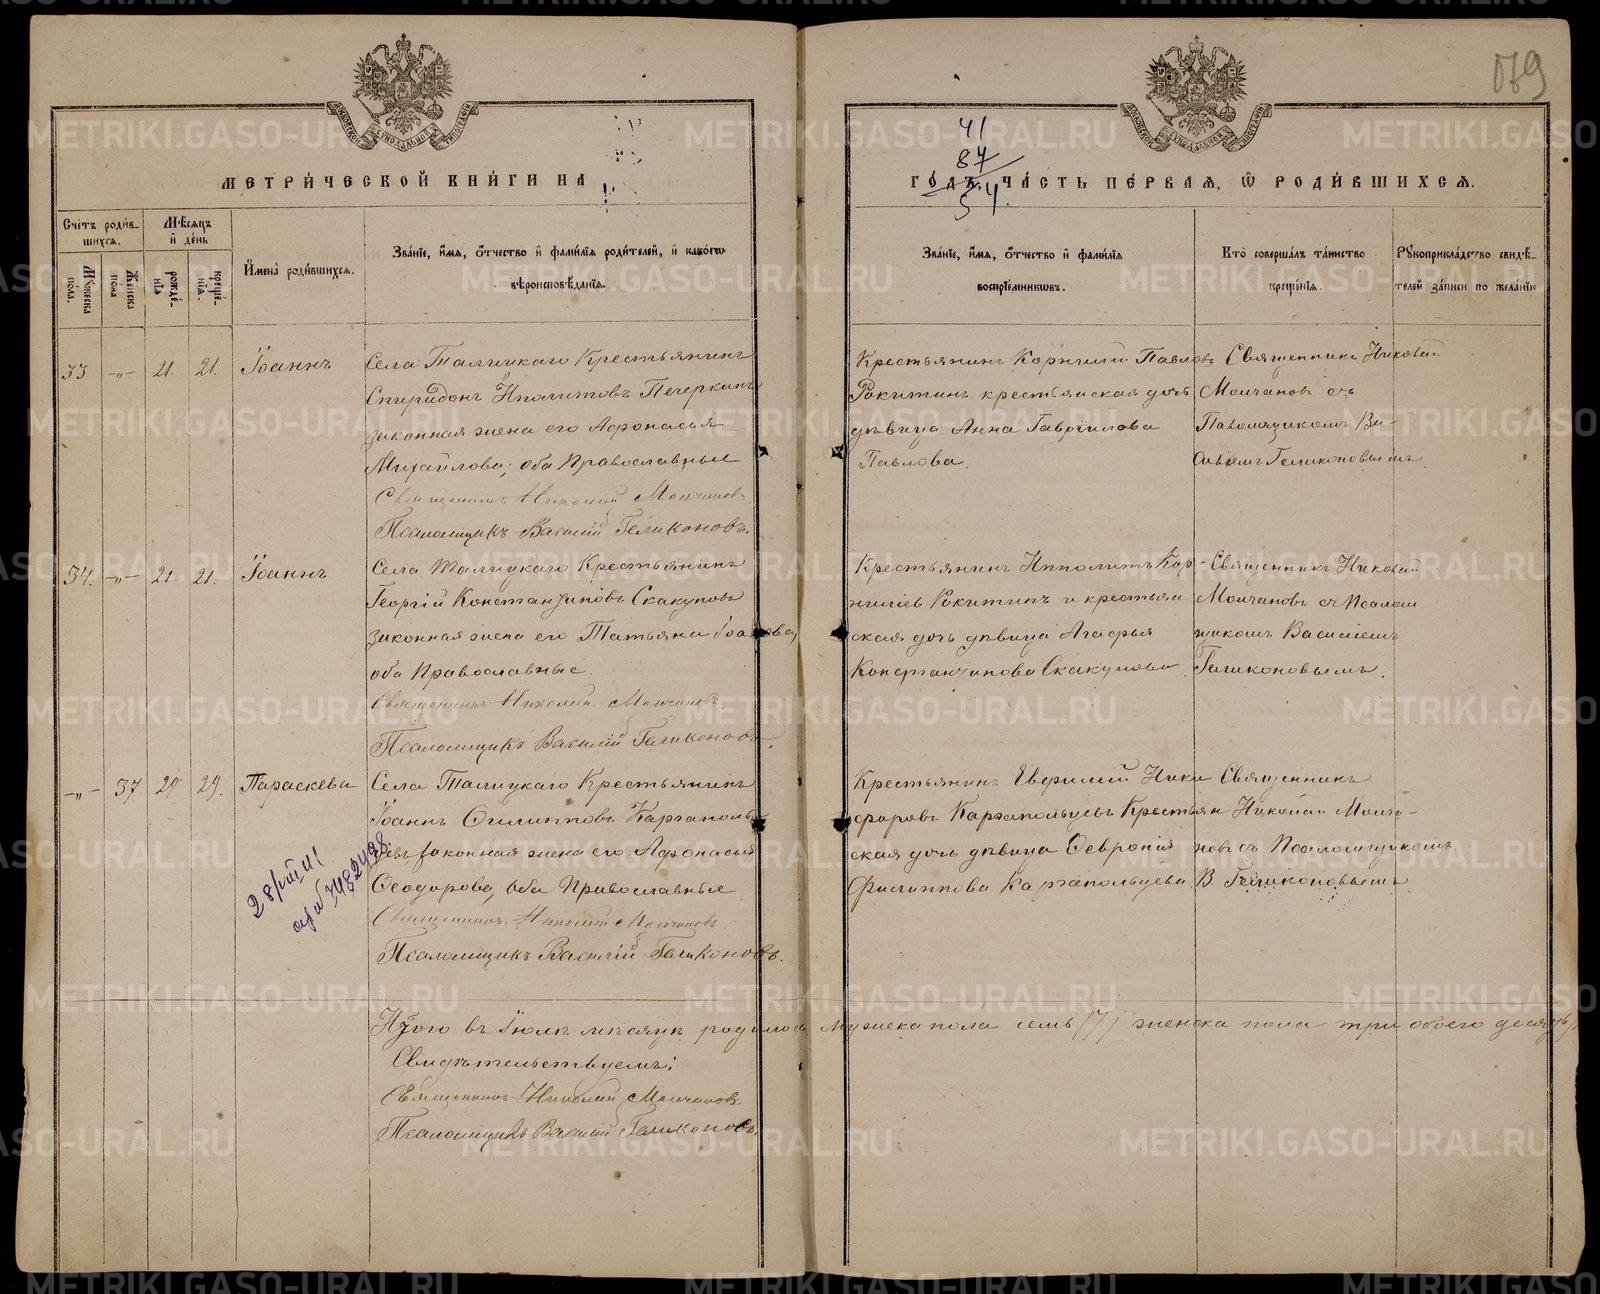 079
МЕТРИ́ЧЕСКОЙ КНИ́ГИ НА
41
87
54.
ГО́ДЪ, ЧА́СТЬ ПЕ́РВАЯ, Ѡ РОДИ́ВШИХСЯ.
Сче́тъ роди́в-
шихся.
Мѣ́сяцъ
и҆ де́нь
Му́жеска по́ла.
Же́нска по́ла
рожде́-нїя
креще́-нїя.
И҆мена̀ роди́вшихся.
Зва́нїе, и҆́мя, ѻ҆́тчество и҆ фами́лїя роди́телей, и҆ како́гѡ
вѣроисповѣ́данїя.
Зва́нїе, и҆́мя, ѻ҆́тчество и҆ фами́лїя
воспрїе́мникѡвъ.
Кто̀ соверша́лъ та́инство
креще́нїя.
Рꙋкоприкла́дство свидѣ́-
телей за́писи по жела́нїю
33 -"- 21. 21. Іоаннъ
Села Талицкаго Крестьянинъ
Спиридонъ Иполитовъ Печеркинъ
законная жена его Афонасья
Михайлова; оба Православные
Священникъ Николай Молчановъ
Псаломщикъ Василій Геликоновъ.
Крестьянинъ Корнилий Павловъ
Рокитинъ крестьянская дочь
дѣвица Анна Гавріилова
Павлова.
Священникъ Николай
Молчановъ съ
Псаломщикомъ Ва-
силіемъ Геликоновымъ
34. -"- 21. 21. Іоаннъ
Села Талицкаго Крестьянинъ
Георгій Константиновъ Скакуновъ
законная жена его Татьяна Іоаннова,
оба Православные.
Священникъ Николай Молчановъ
Псаломщикъ Василій Геликоновъ.
Крестьянинъ Ипполитъ Кор-
ниліевъ Рокитинъ и крестьян
ская дочь дѣвица Агафья
Константинова Скакунова.
Священникъ Николай
Молчановъ съ Псалом
щикомъ Василіемъ
Геликоновымъ.
-"- 37. 29 29. Параскева
Села Талицкаго Крестьянинъ
Іоаннъ Филипповъ Каргаполь
цевъ законная жена его Афонасья
Феодорова, оба Православные
Священникъ Николай Молчановъ
Псаломщикъ Василій Геликоновъ.
Крестьянинъ Евфимій Ники
форовъ Каргапольцевъ Крестьян
ская дочь дѣвица Февронія
Филиппова Каргапольцева
Священникъ
Николай Молча-
новъ съ Псаломщикомъ
В. Геликоновымъ.
28/VIII 41
Итого въ Іюлѣ мѣсяцѣ родилось мужеска пола семь /7/ женска пола три обоего десять
Свидѣтельствуемъ:
Священникъ Николай Молчановъ
Псаломщикъ Василій Геликоновъ.
METRIKI.GASO-URAL.RU